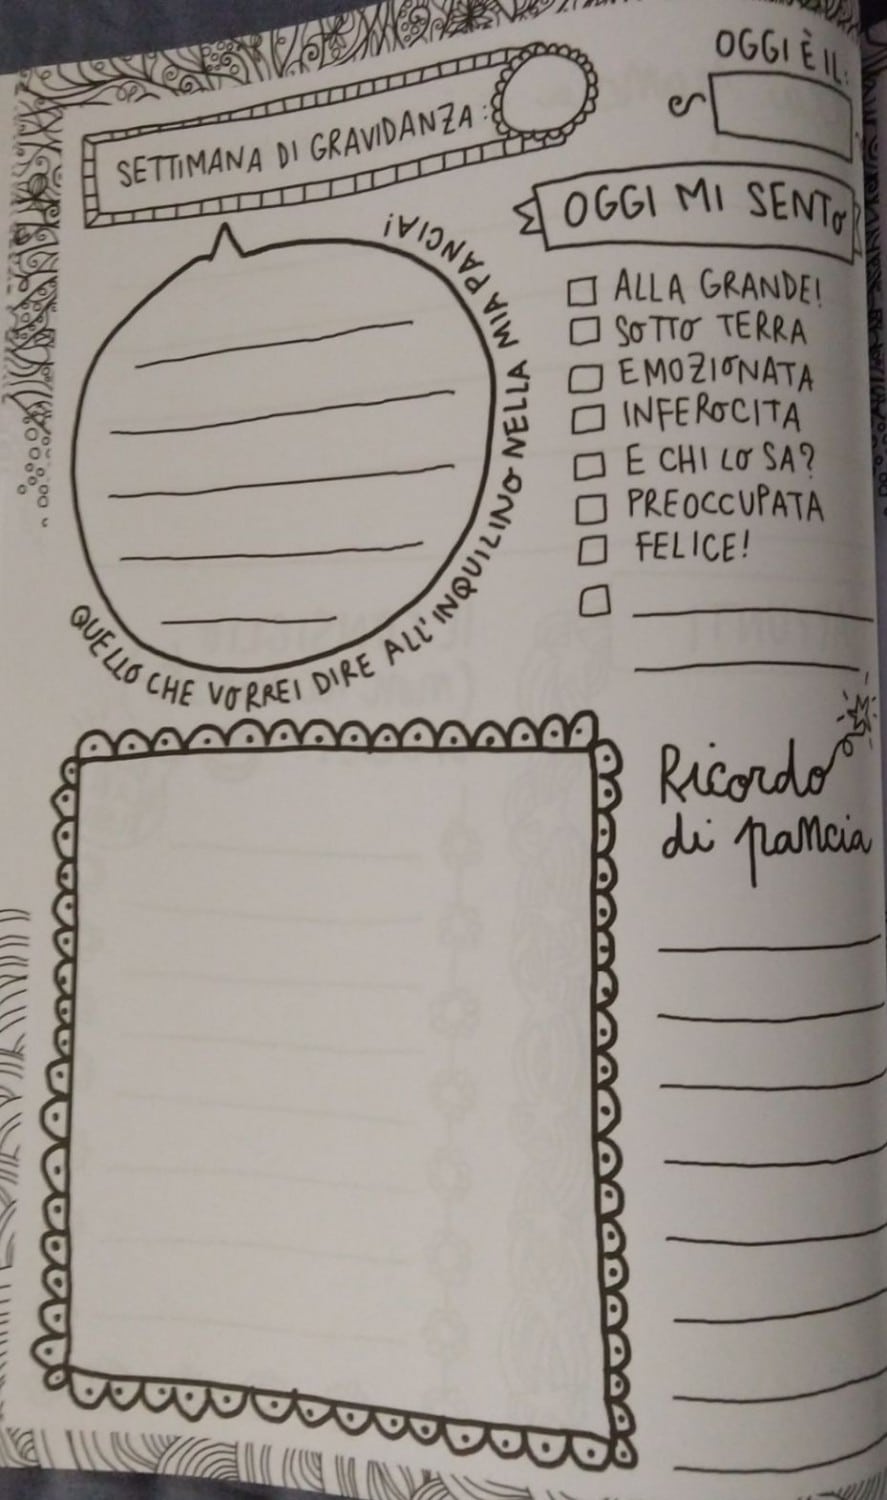 OGGI È IL:
SETTIMANA DI GRAVIDANZA:
OGGI MI SENTO
ALLA GRANDE!
SOTTO TERRA
EMOZIONATA
INFEROCITA
E CHI LO SA?
PREOCCUPATA
FELICE!
QUELLO CHE VORREI DIRE ALL'INQUILINO NELLA MIA PANCIA!
Ricordo
di pancia